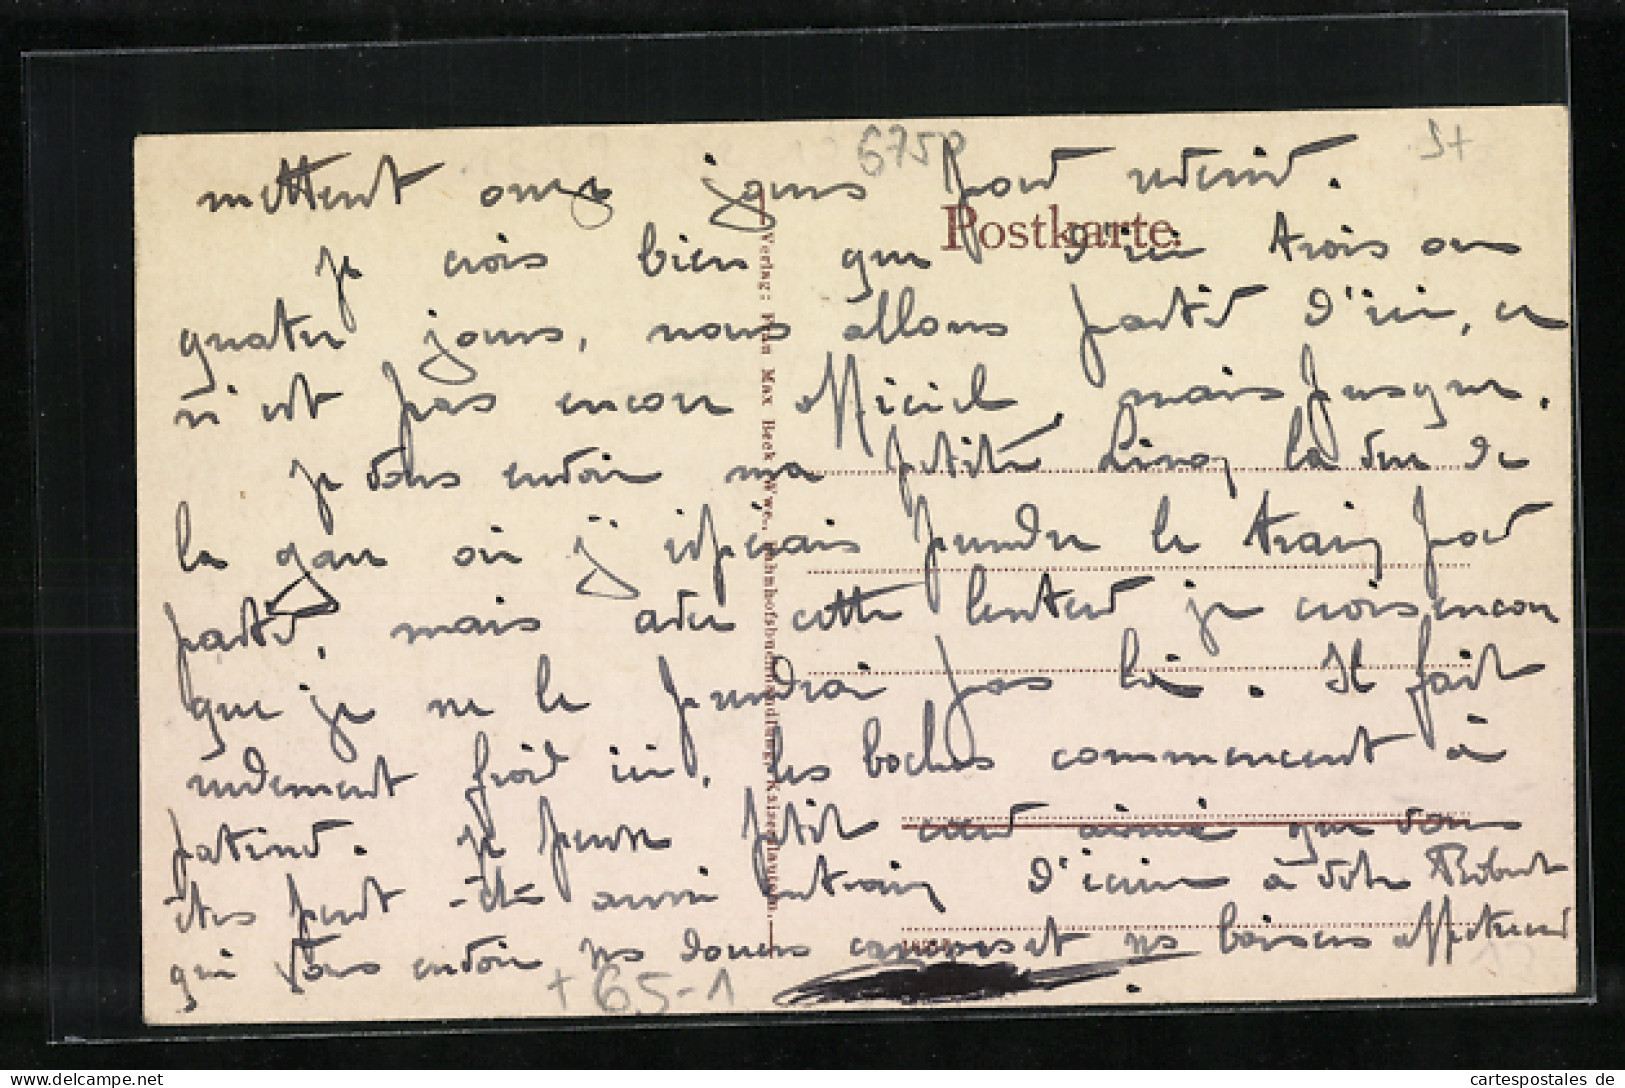 6750
St
mettent onze jours pour revenir.
Postkarte.
je crois bien que d'ici trois ou
quatre jours, nous allons partir d'ici, ce
n'est pas encore officiel, mais presque.
je vous envoie ma petite Linoy la vue de
la gare où j'espérais prendre le train pour
partir, mais avec cette lenteur je crois encore
que je ne le prendrai pas là. Il fait
rudement froid ici, les boches commencent à
patiner. je pense petit cœur aimé que vous
êtes peut-être aussi entrain d'écrire à votre Robert
qui vous envoie ses douces caresses et ses baisers affectueux
Verlag: Frau Max Beck Wwe., Bahnhofsbuchhandlung, Kaiserslautern.
+ 65-1
cartespostales de